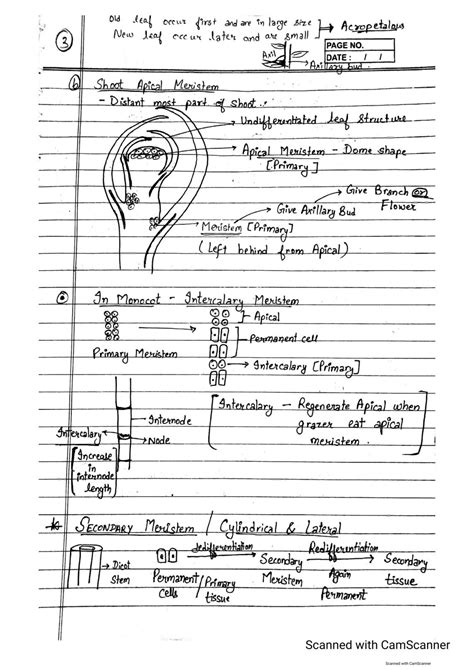 3
Old leaf occur first and are in large size
New leaf occur later and are small
→ Acropetalous
PAGE NO.
DATE : / /
Axil
Axillary bud
(b) Shoot Apical Meristem
- Distant most part of shoot.
→ Undifferentiated leaf structure
→ Apical Meristem - Dome shape
[Primary]
→ Give Branch or Flower
→ Give Axillary Bud
→ Meristem [Primary]
(Left behind from Apical)
In Monocot - Intercalary Meristem
Apical
Permanent cell
Primary Meristem
→ Intercalary [Primary]
Internode
Intercalary
Node
[Increase in internode length]
[Intercalary - Regenerate Apical when grazer eat apical meristem.]
SECONDARY Meristem / Cylindrical & Lateral
→ Dicot Stem
Permanent cells / Primary tissue
dedifferentiation
Secondary Meristem
Redifferentiation
Again Permanent
Secondary tissue
Scanned with CamScanner
Scanned with CamScanner